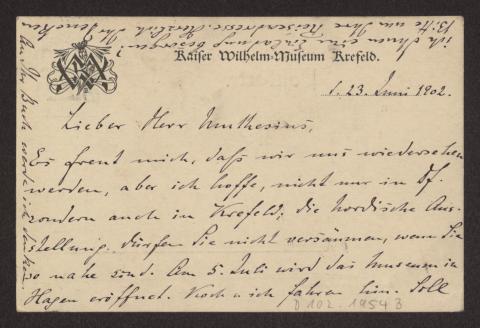 Kaiser Wilhelm-Museum Krefeld.
d. 23. Juni 1902.
Lieber Herr Muthesius,
Es freut mich, daß wir uns wiedersehen
werden, aber ich hoffe, nicht nur in Df.
sondern auch in Krefeld; die Nordische Aus-
stellung dürfen Sie nicht versäumen, wenn Sie
so nahe sind. Am 5. Juli wird das Museum in
Hagen eröffnet. Koch u ich fahren hin. Soll
ich Ihnen eine Einladung besorgen?
Bitte um Ihre Reiseadresse. Herzlich Ihr Deneken
An Ihr Buch werde ich denken.
D 102-1954 3